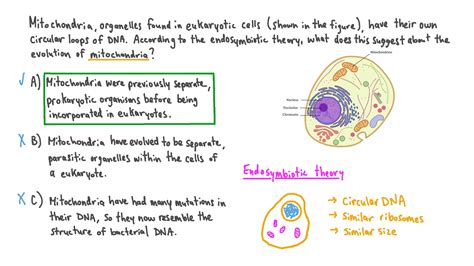 Mitochondria, organelles found in eukaryotic cells (shown in the figure), have their own
circular loops of DNA. According to the endosymbiotic theory, what does this suggest about the
evolution of mitochondria?
Mitochondria
✓ A) Mitochondria were previously separate,
prokaryotic organisms before being
incorporated in eukaryotes.
Nucleus
Nucleolus
Chromatin
X B) Mitochondria have evolved to be separate,
parasitic organelles within the cells of
a eukaryote.
Endosymbiotic theory
X C) Mitochondria have had many mutations in
their DNA, so they now resemble the
structure of bacterial DNA.
→ Circular DNA
→ Similar ribosomes
→ Similar size